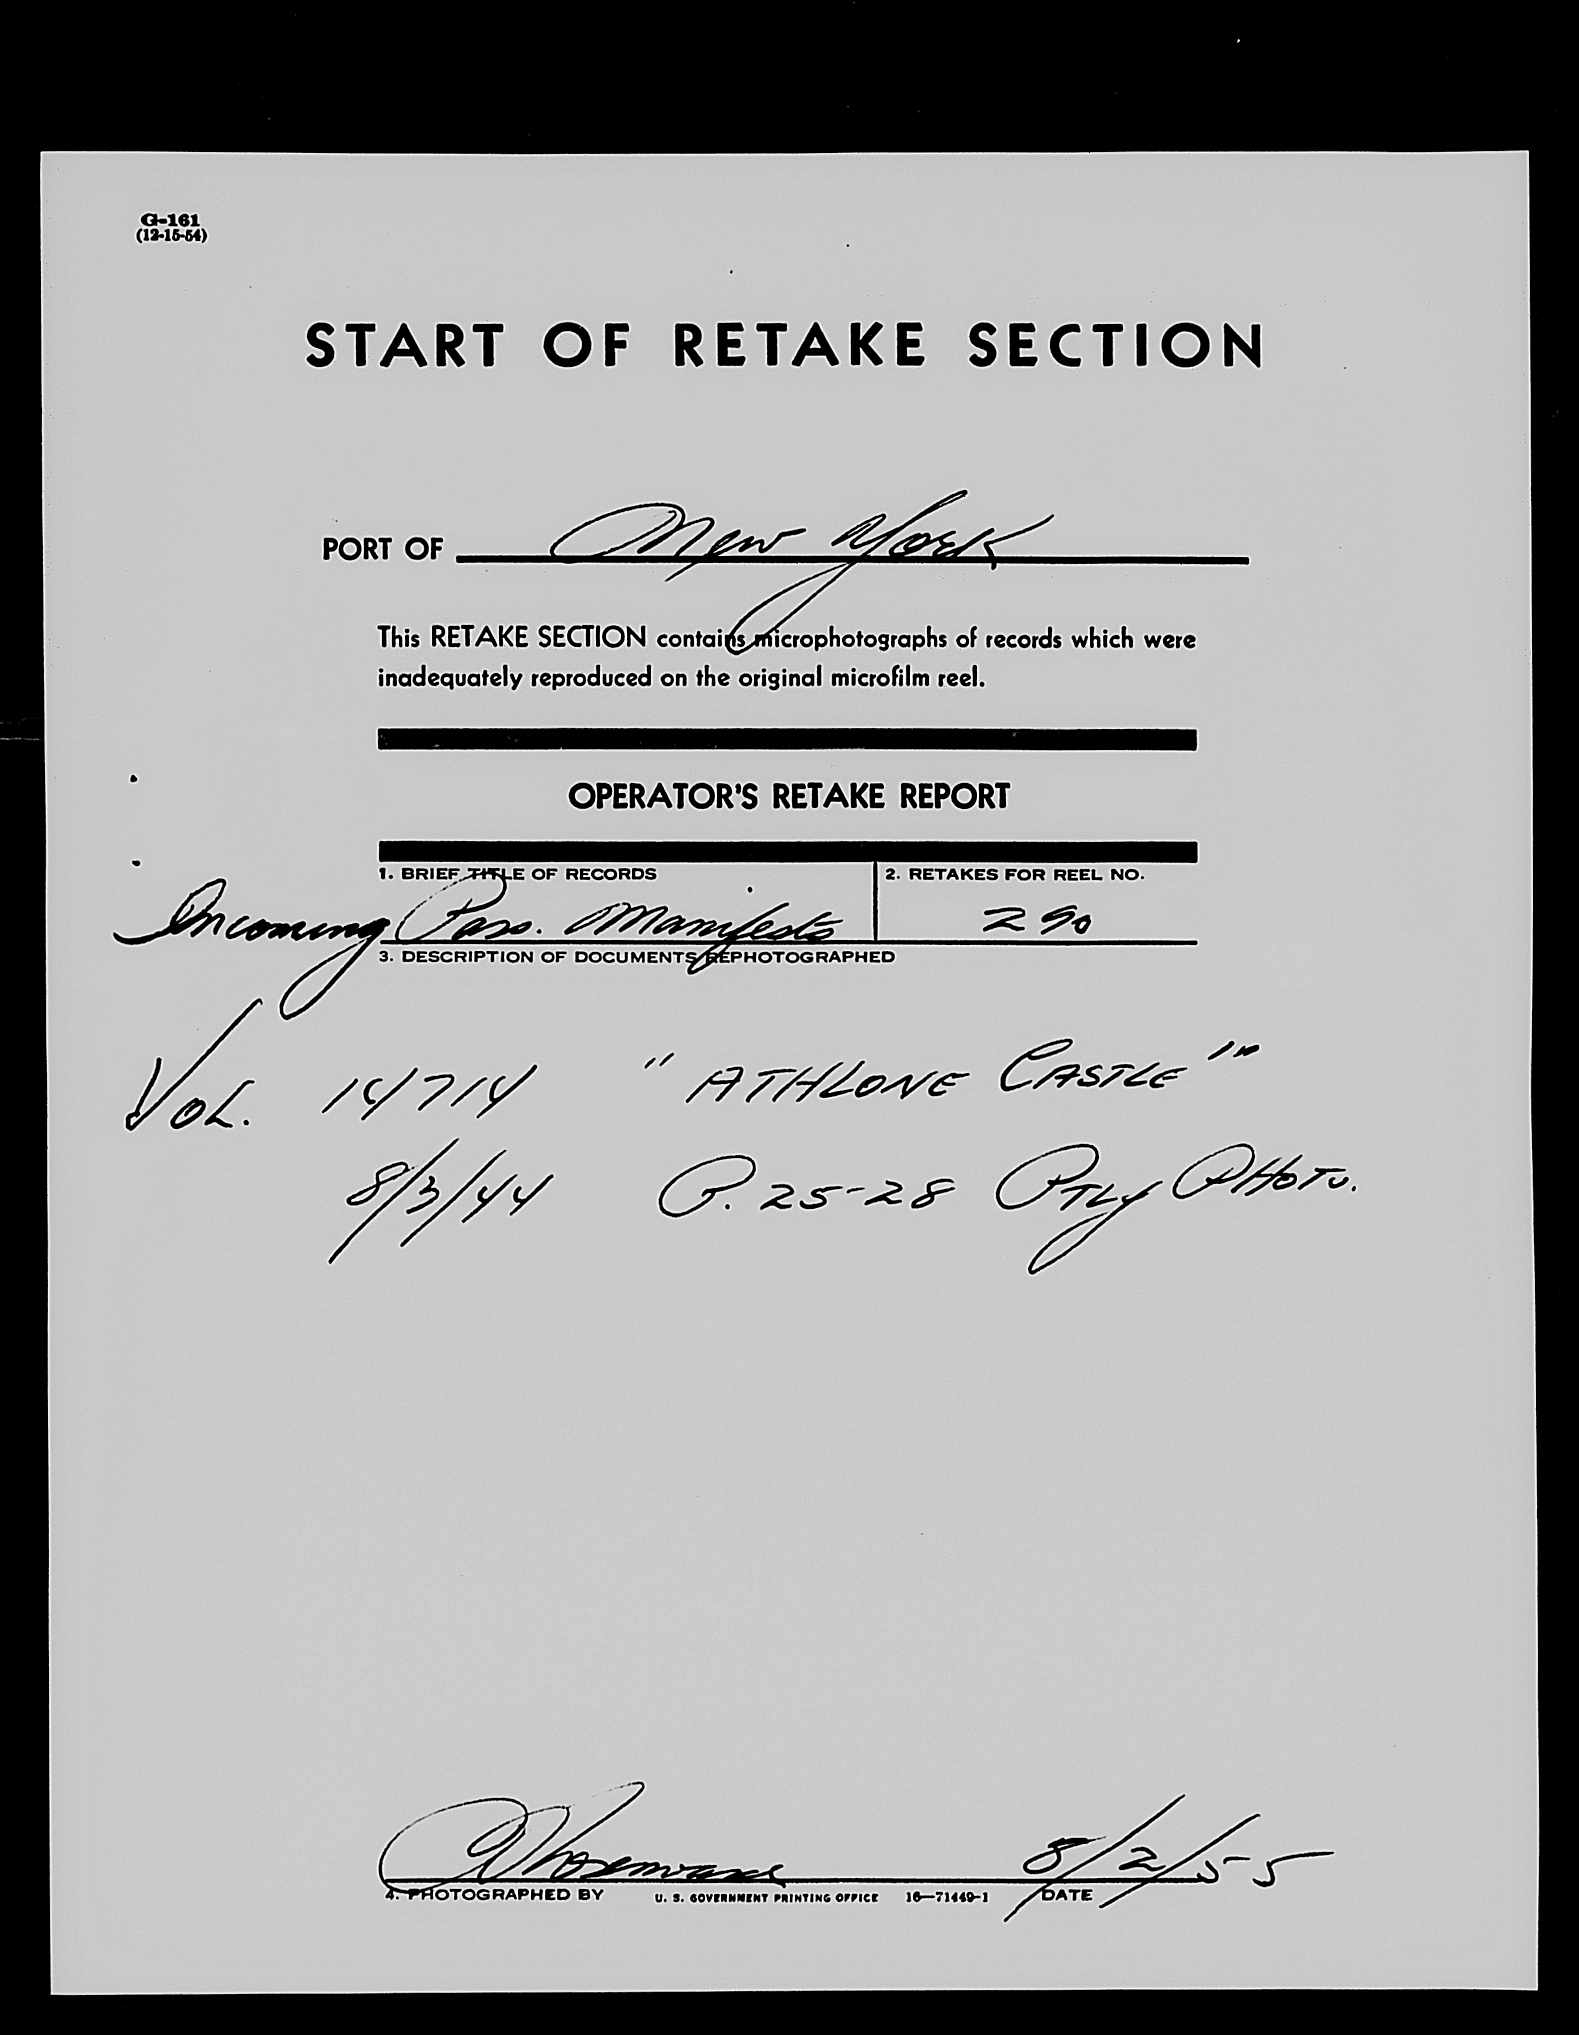 G-161
(12-15-54)
START OF RETAKE SECTION
PORT OF New York
This RETAKE SECTION contains microphotographs of records which were
inadequately reproduced on the original microfilm reel.
OPERATOR'S RETAKE REPORT
1. BRIEF TITLE OF RECORDS 2. RETAKES FOR REEL NO.
Incoming Pass. Manifests 290
3. DESCRIPTION OF DOCUMENTS REPHOTOGRAPHED
VOL. 14714 "ATHLONE CASTLE"
8/3/44 P. 25-28 PTLY PHOTO.
8/2/55
4. PHOTOGRAPHED BY U. S. GOVERNMENT PRINTING OFFICE 16—71449-1 DATE